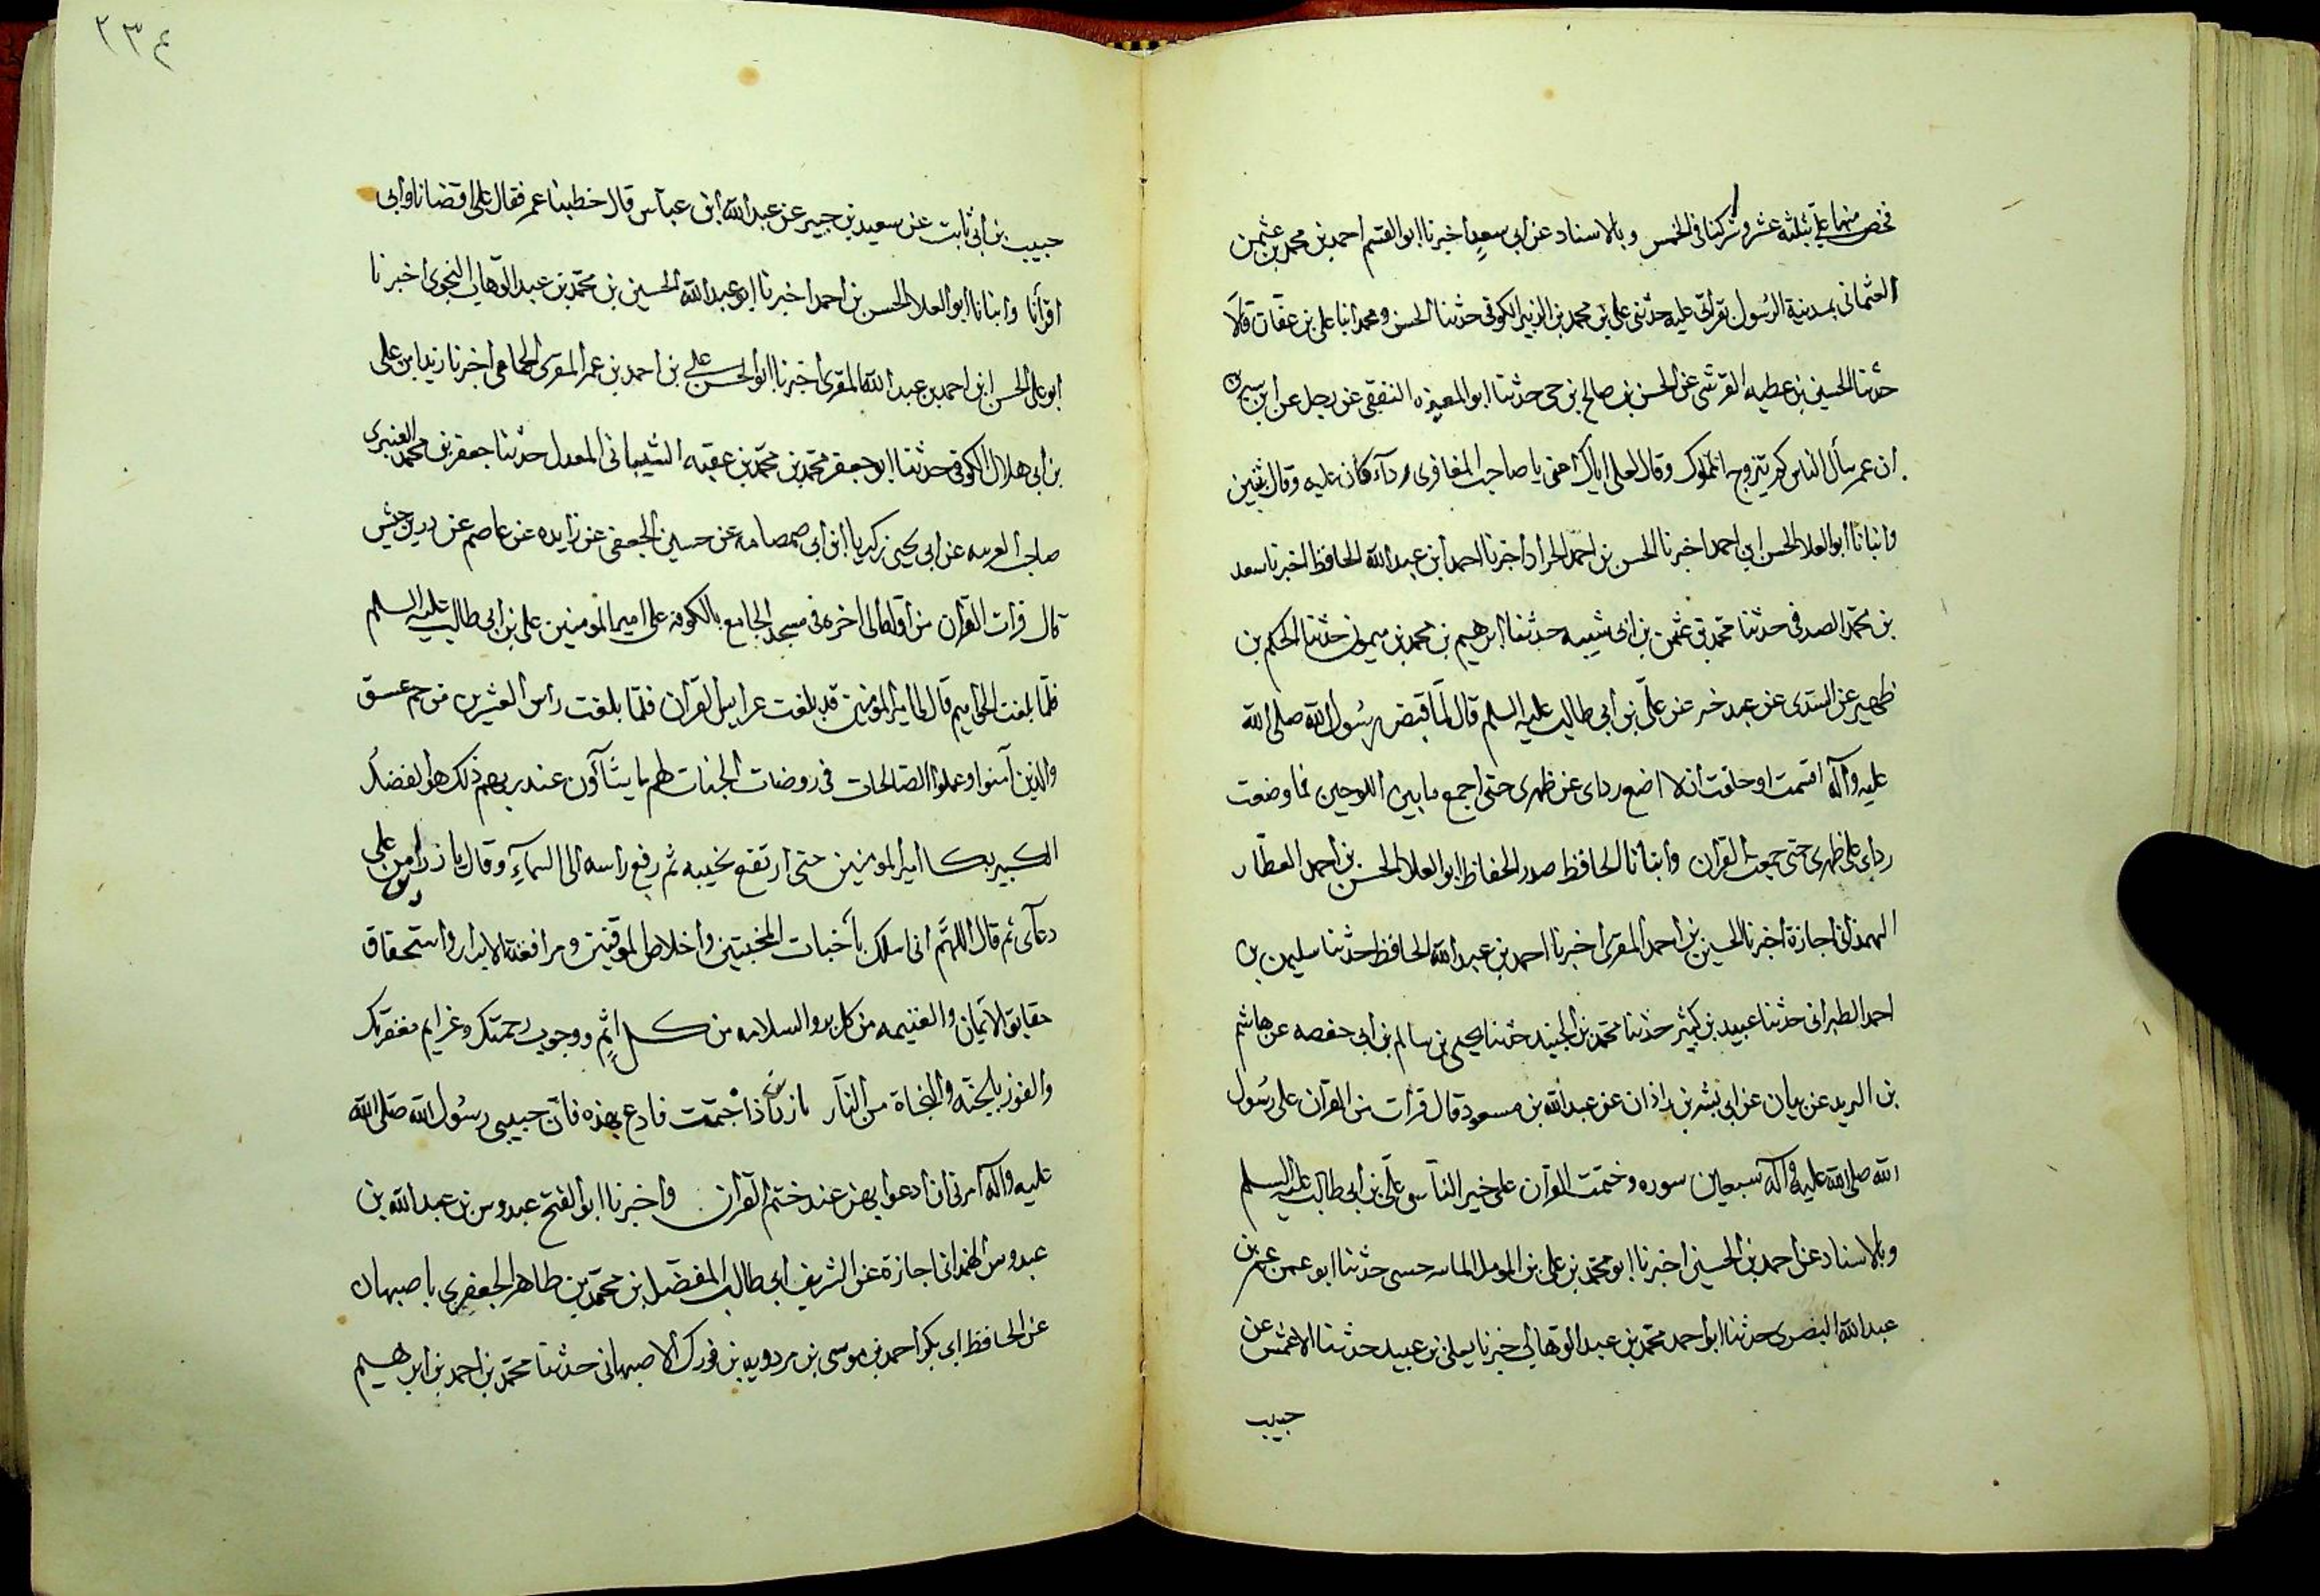 فخص منها علي بثلثه عشر وشركنا في الخمس وبالاسناد عن ابي سعيد اخبرنا ابو القسم احمد بن محمد بن عثمن
العثماني بمدينة الرسول بقراتي عليه حدثني علي بن محمد بن الزبير الكوفي حدثنا الحسن ومحمد ابنا علي بن عفان قالا
حدثنا الحسين بن عطيه القرشي عن الحسن بن صالح بن حي حدثنا ابو المغيره الثقفي عن رجل عن ابن سيرين
ان عمر سأل الناس كم يتزوج المملوك وقال لعلي اياك اعني يا صاحب المغافري ردآء كان عليه وقال ثنتين
وانبانا ابو العلا الحسن ابن احمد اخبرنا الحسن بن احمد الحداد اخبرنا احمد ابن عبد الله الحافظ اخبرنا سعد
بن محمد الصدفي حدثنا محمد بن عثمن بن ابي شيبه حدثنا ابرهيم بن محمد بن ميمون حدثنا الحكم بن
ظهير عن السدي عن عبد خير عن علي بن ابي طالب عليه السلم قال لما قبض رسول الله صلى الله
عليه وآله اقسمت او حلفت ان لا اضع رداي عن ظهري حتى اجمع ما بين اللوحين فما وضعت
رداي على ظهري حتى جمعت القران وانبانا الحافظ صدر الحفاظ ابو العلا الحسن بن احمد العطار
الهمذاني اجازة اخبرنا الحسين بن احمد المقري اخبرنا احمد بن عبد الله الحافظ حدثنا سليمن بن
احمد الطبراني حدثنا عبيد بن كثير حدثنا محمد بن الجنيد حدثنا يحيى بن سالم بن ابي حفصه عن هاشم
بن البريد عن بيان عن ابي بشر بن زاذان عن عبد الله بن مسعود قال قرات من القران على رسول
الله صلى الله عليه وآله سبعين سوره وختمت القران على خير الناس علي بن ابي طالب عليه السلم
وبالاسناد عن احمد بن الحسين اخبرنا ابو محمد بن علي بن المومل حدثنا ابو عمن عمرو بن
عبد الله البصري حدثنا ابو احمد محمد بن عبد الوهاب اخبرنا يعلى بن عبيد حدثنا الاعمش عن
حبيب
٢٣٤
حبيب بن ابي ثابت عن سعيد بن جبير عن عبد الله ابن عباس قال خطبنا عمر فقال علي اقضانا وابي
اقرأنا وانبانا ابو العلا الحسن بن احمد اخبرنا ابو عبد الله الحسين بن محمد بن عبد الوهاب النحوي اخبرنا
ابو علي الحسن ابن احمد بن عبد الله المقري اخبرنا ابو الحسن علي بن احمد بن عمر المقري الحمامي اخبرنا زيد ابن علي
بن ابي هلال الكوفي حدثنا ابو جعفر محمد بن محمد بن عقبه الشيباني المعدل حدثنا جعفر بن محمد العنبري
صاحب عن ابي يحيى زكريا ابن ابي صمصامه عن حسين الجعفي عن زايده عن عاصم عن زر بن حبيش
قال قرات القرآن من اوله الى اخره في مسجد الجامع بالكوفة على امير المومنين علي بن ابي طالب عليه السلم
فلما بلغت الحواميم قال لي امير المومنين قد بلغت عرايس القران فلما بلغت راس العشرين من حم عسق
والذين آمنوا وعملوا الصالحات في روضات الجنات لهم ما يشآؤن عند ربهم ذلك هو الفضل
الكبير بكا امير المومنين حتى ارتفع نحيبه ثم رفع راسه الى السمآء وقال يا زر امن على
دعآي ثم قال اللهم اني اسلك اخبات المخبتين واخلاص الموقنين ومرافقة الابرار واستحقاق
حقايق الايمان والغنيمه من كل بر والسلامه من كل اثم ووجوب رحمتك وعزايم مغفرتك
والفوز بالجنه والنجاة من النار يا زر اذا ختمت فادع بهذه فان حبيبي رسول الله صلى الله
عليه وآله امرني ان ادعوا بهن عند ختم القران واخبرنا ابو الفتح عبدوس بن عبد الله بن
عبدوس الهمذاني اجازة عن الشريف ابي طالب المفضل بن محمد بن طاهر الجعفري باصبهان
عن الحافظ ابي بكر احمد بن موسى بن مردويه بن فورك الاصبهاني حدثنا محمد بن احمد بن ابرهيم